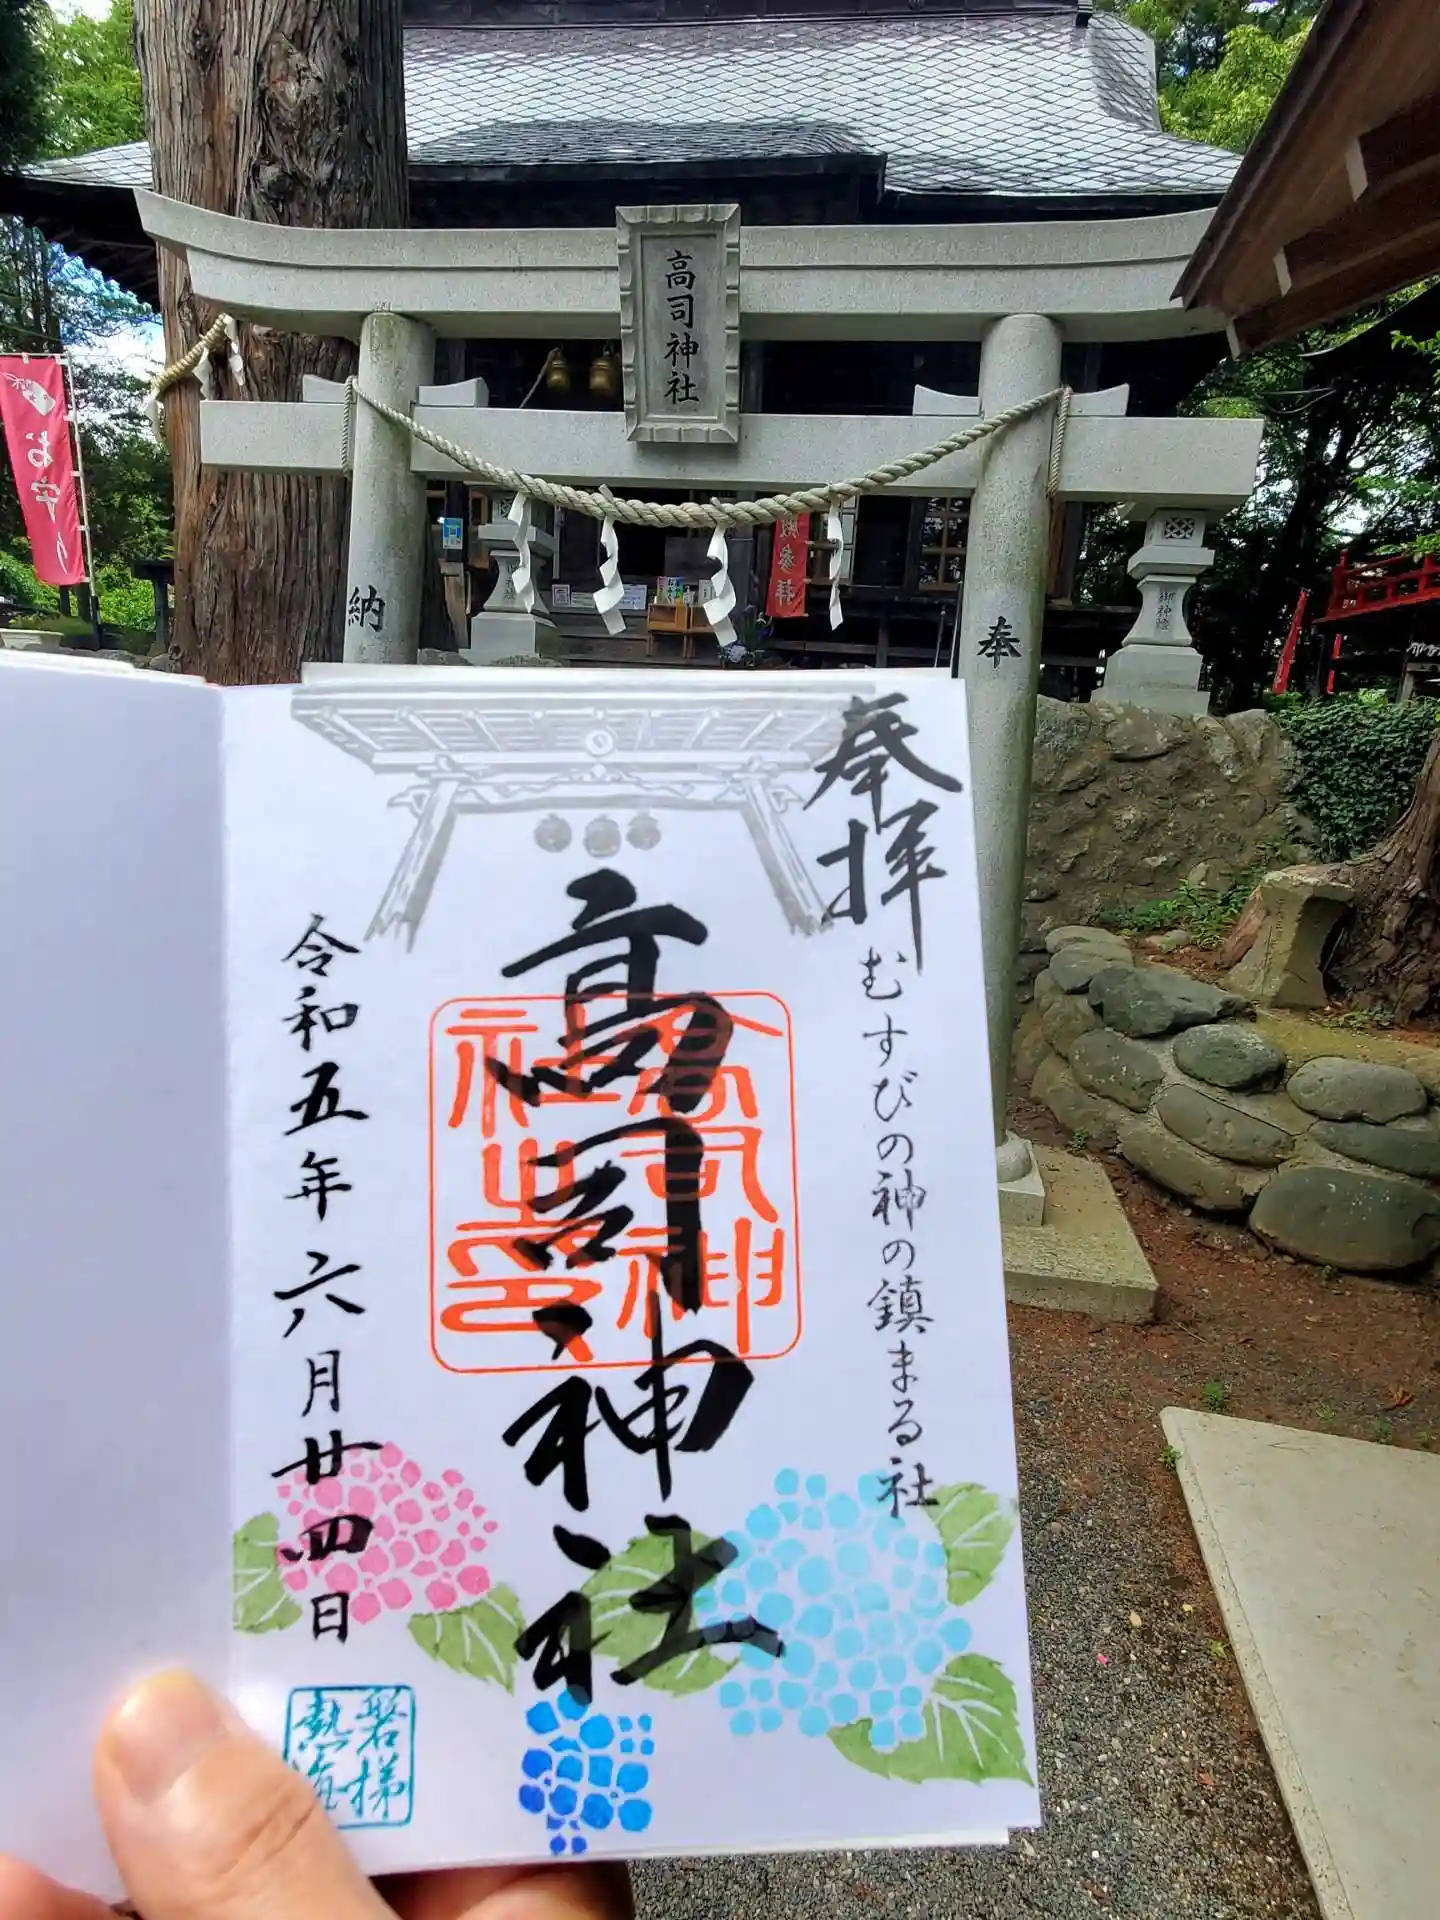 高司神社
お守り
納
奉
参拝
御神燈
奉拝
むすびの神の鎮まる社
高司神社
高司神社之印
令和五年六月廿四日
磐梯
熱海